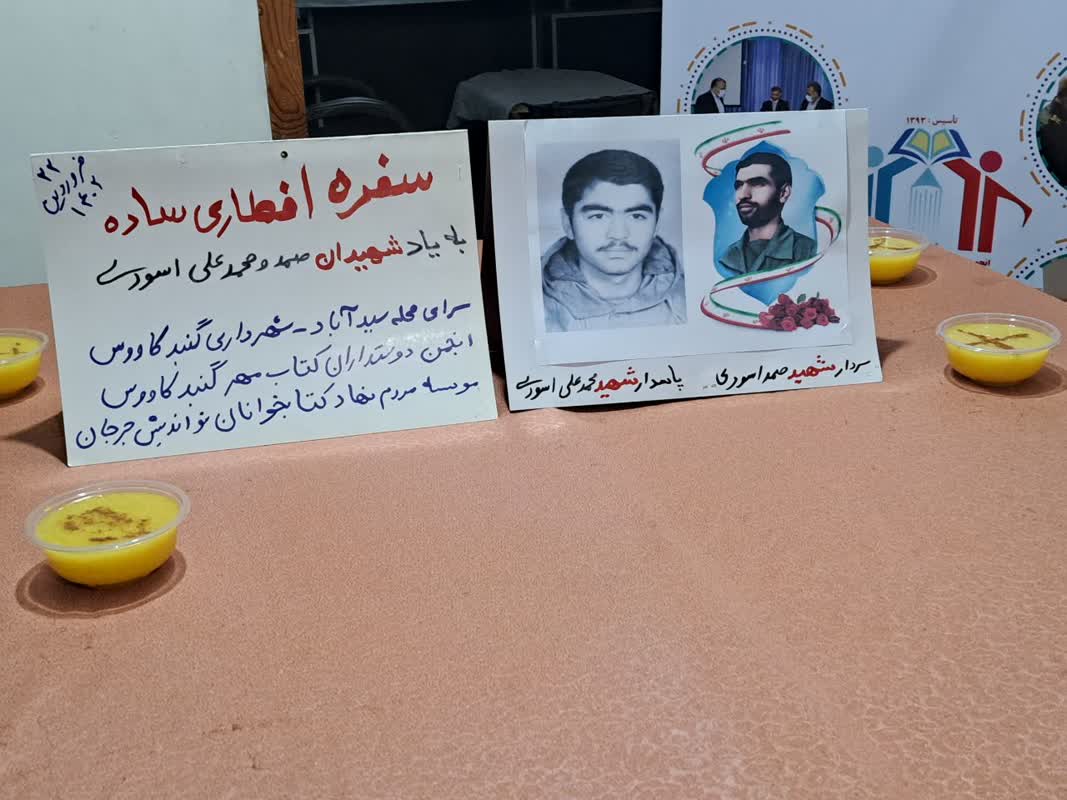 ۲۲
فروردین
۱۴۰۲
سفره افطاری ساده
به یاد شهیدان صمد و محمد علی اسودی
سرای محله سیدآباد - شهرداری گنبد کاووس
انجمن دوستداران کتاب مهر گنبد کاووس
موسسه مردم نهاد کتابخوانان نواندیش جرجان
سردار شهید صمد اسودی
پاسدار شهید محمد علی اسودی
تاسیس : ۱۳۹۳